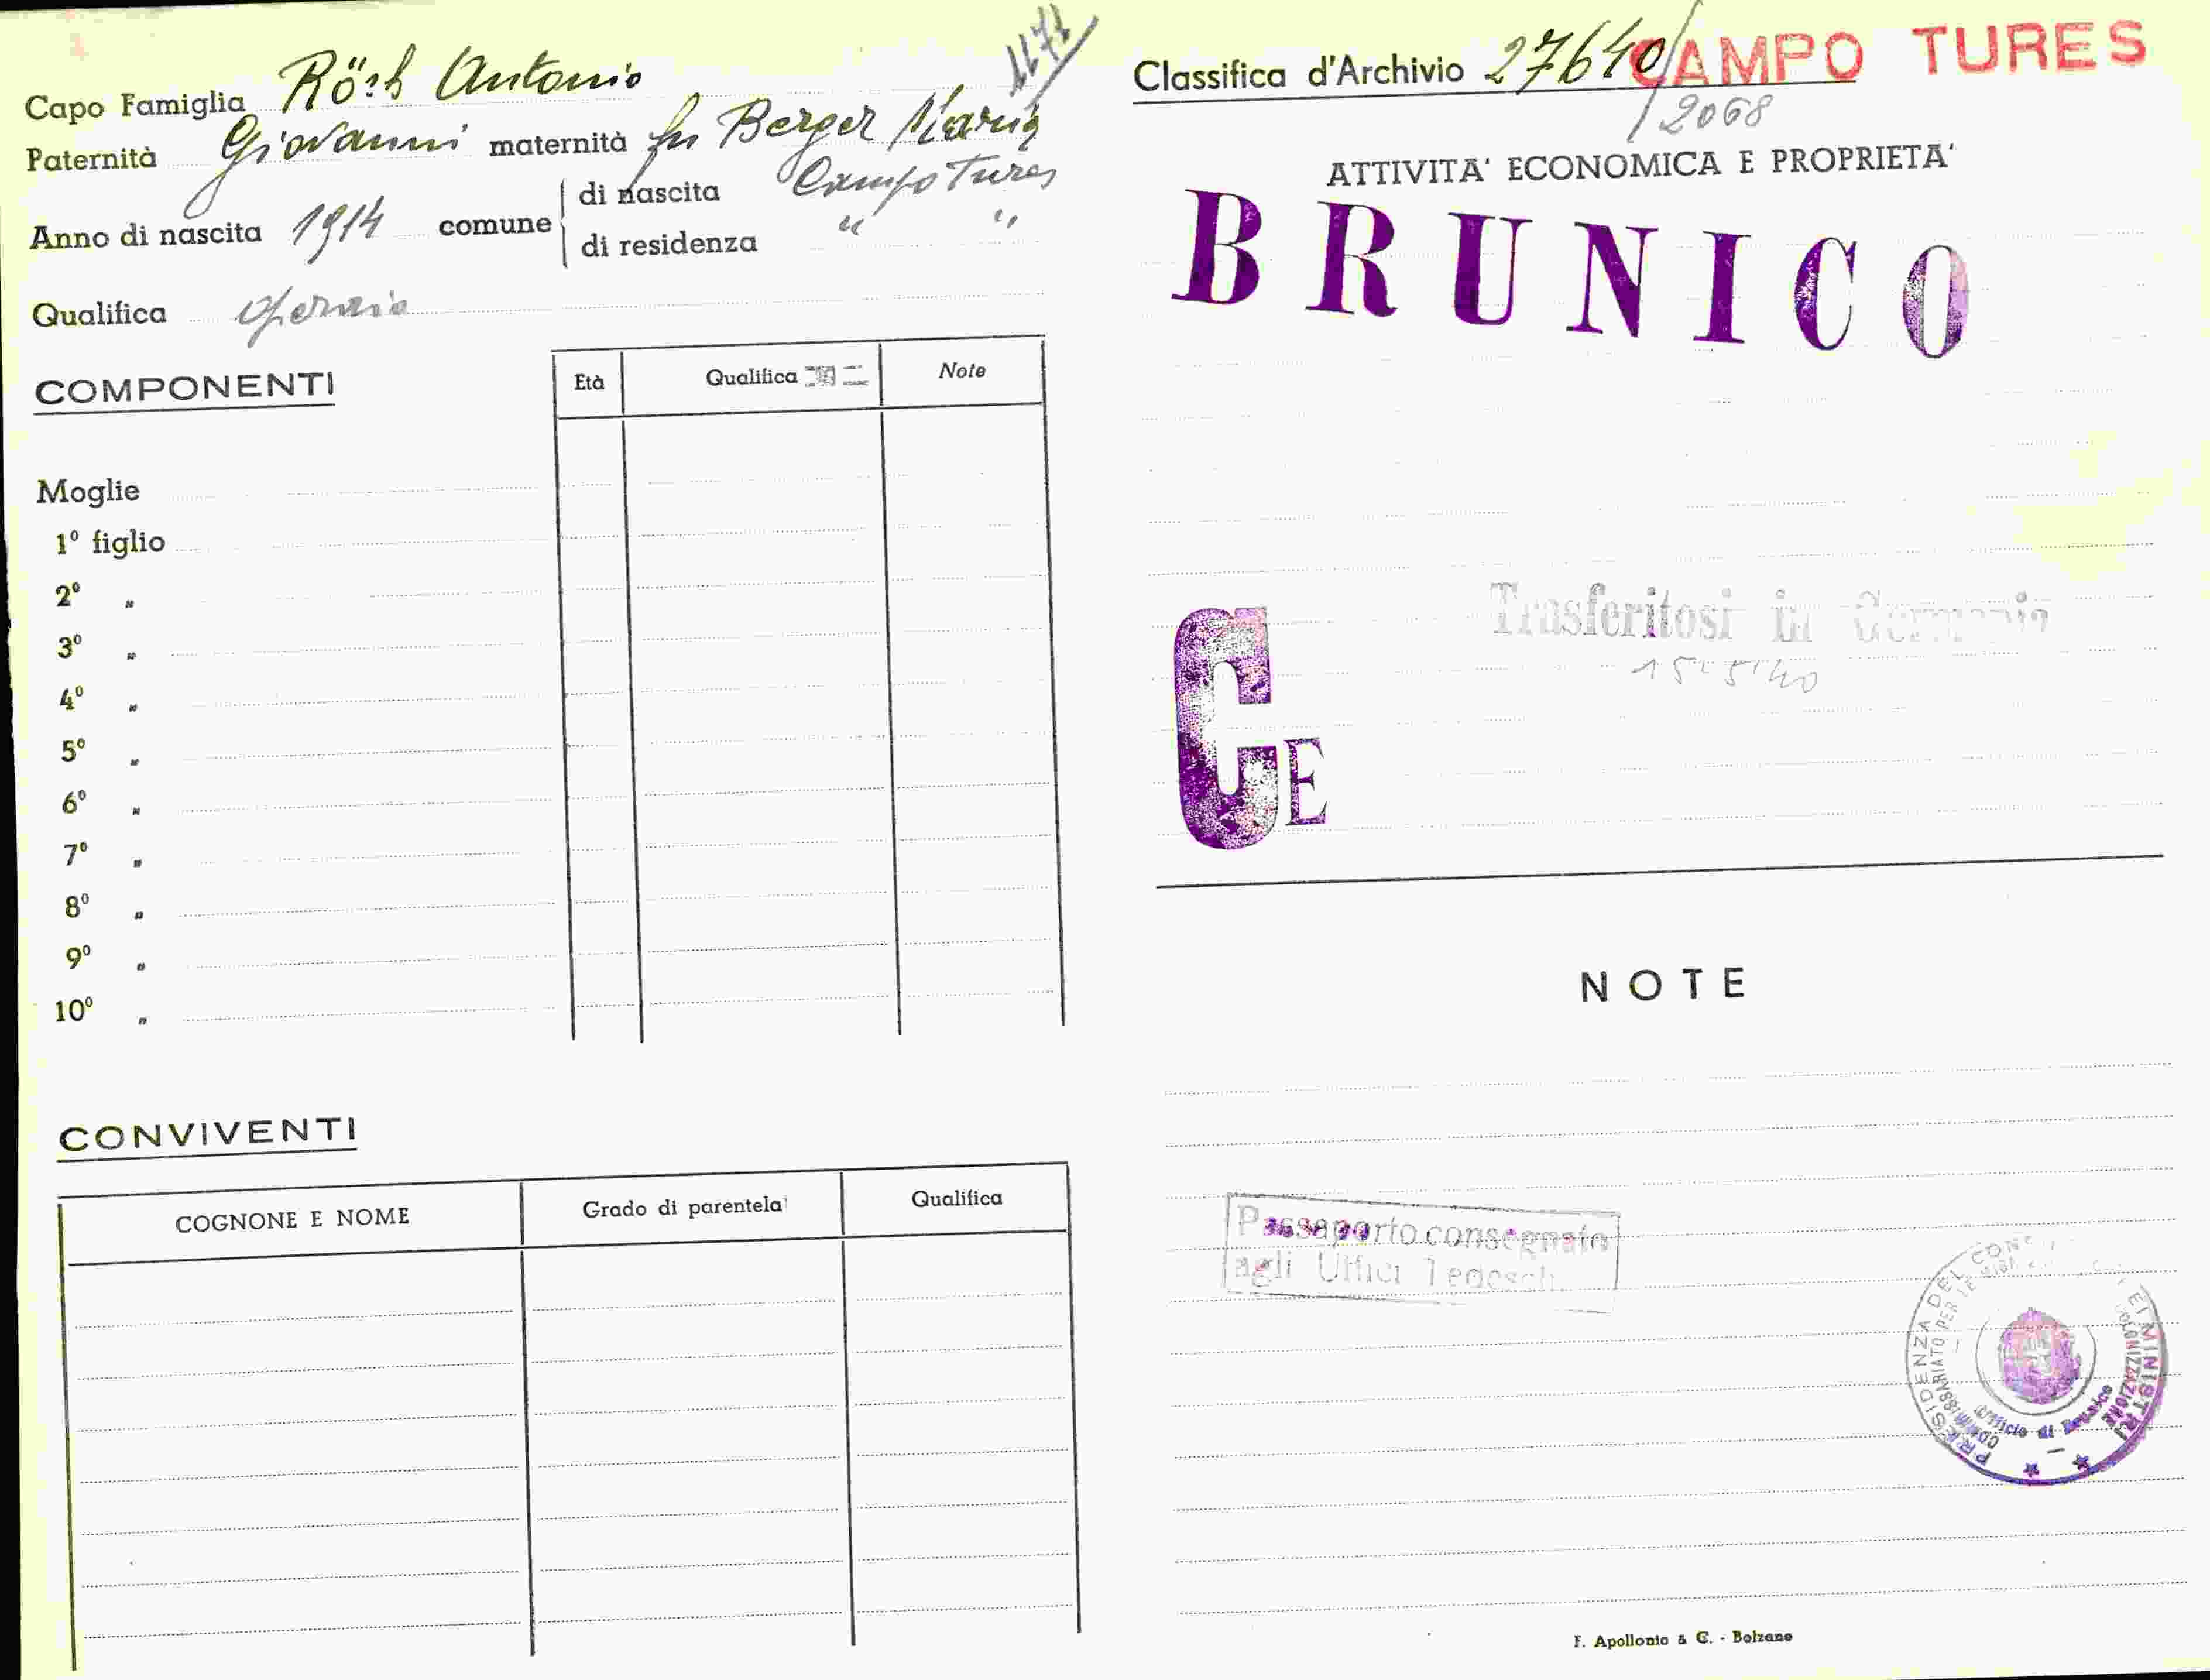 Capo Famiglia Antonio
Paternità Giovanni maternità fu Berger Maria
Anno di nascita 1914 comune di nascita Campo Tures
di residenza " "
Qualifica operaio
COMPONENTI
Età Qualifica Note
Moglie
1º figlio
2º "
3º "
4º "
5º "
6º "
7º "
8º "
9º "
10º "
CONVIVENTI
COGNONE E NOME Grado di parentela Qualifica
Classifica d'Archivio 27640/2068
CAMPO TURES
ATTIVITA' ECONOMICA E PROPRIETA'
BRUNICO
Trasferitosi in Germania
15-5-40
CE
NOTE
Passaporto consegnato
agli Uffici Tedeschi
PRESIDENZA DEL CONSIGLIO DEI MINISTRI
COMMISSARIATO PER LE MIGRAZIONI E COLONIZZAZIONE
Ufficio di Brunico
F. Apollonio & C. - Bolzano